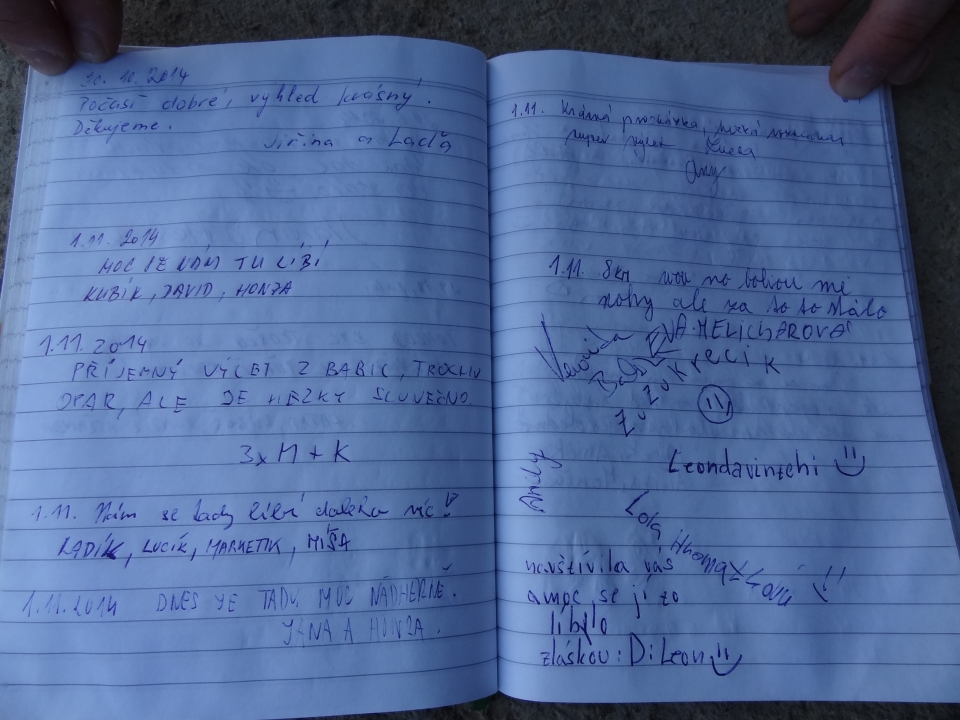 30. 10. 2014
Počasí dobré, výhled krásný.
Děkujeme.
Jiřina a Laďa
1.11. 2014
MOC SE NÁM TU LÍBÍ
KUBÍK, DAVID, HONZA
1.11.2014
PŘÍJEMNÝ VÝLET Z BABIC, TROCHU
OPAR, ALE JE HEZKY SLUNEČNO.
3xM + K
1.11. Nám se tady líbí daleko víc!
RADÍK, LUCÍK, MARKETIK, MÍŠA
1.11.2014 DNES JE TADY MOC NÁDHERNĚ.
JANA A HONZA.
1.11. Krásná procházka,
super výlet
1.11. 8km bolí mě
nohy ale za to to stálo
EVA MELICHAROVÁ
Leondavinčhi
Lola
navštívila vás
amoc se jí zo
líbilo
zláskou: DiLeon